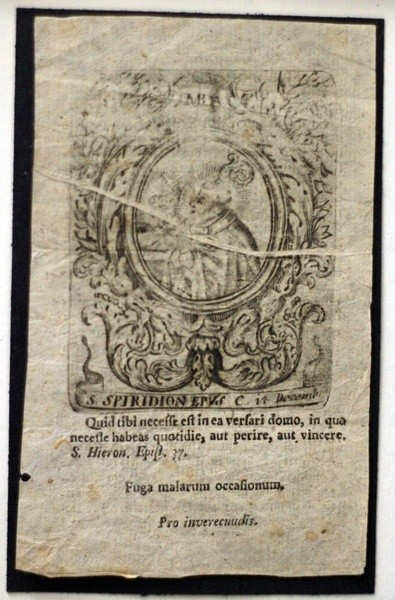 S. SPIRIDION EPVS C. 14 Decemb.
Quid tibi necesse est in ea versari domo, in qua
necesse habeas quotidie, aut perire, aut vincere.
S. Hieron. Epist. 37.
Fuga malarum occasionum.
Pro inverecundis.